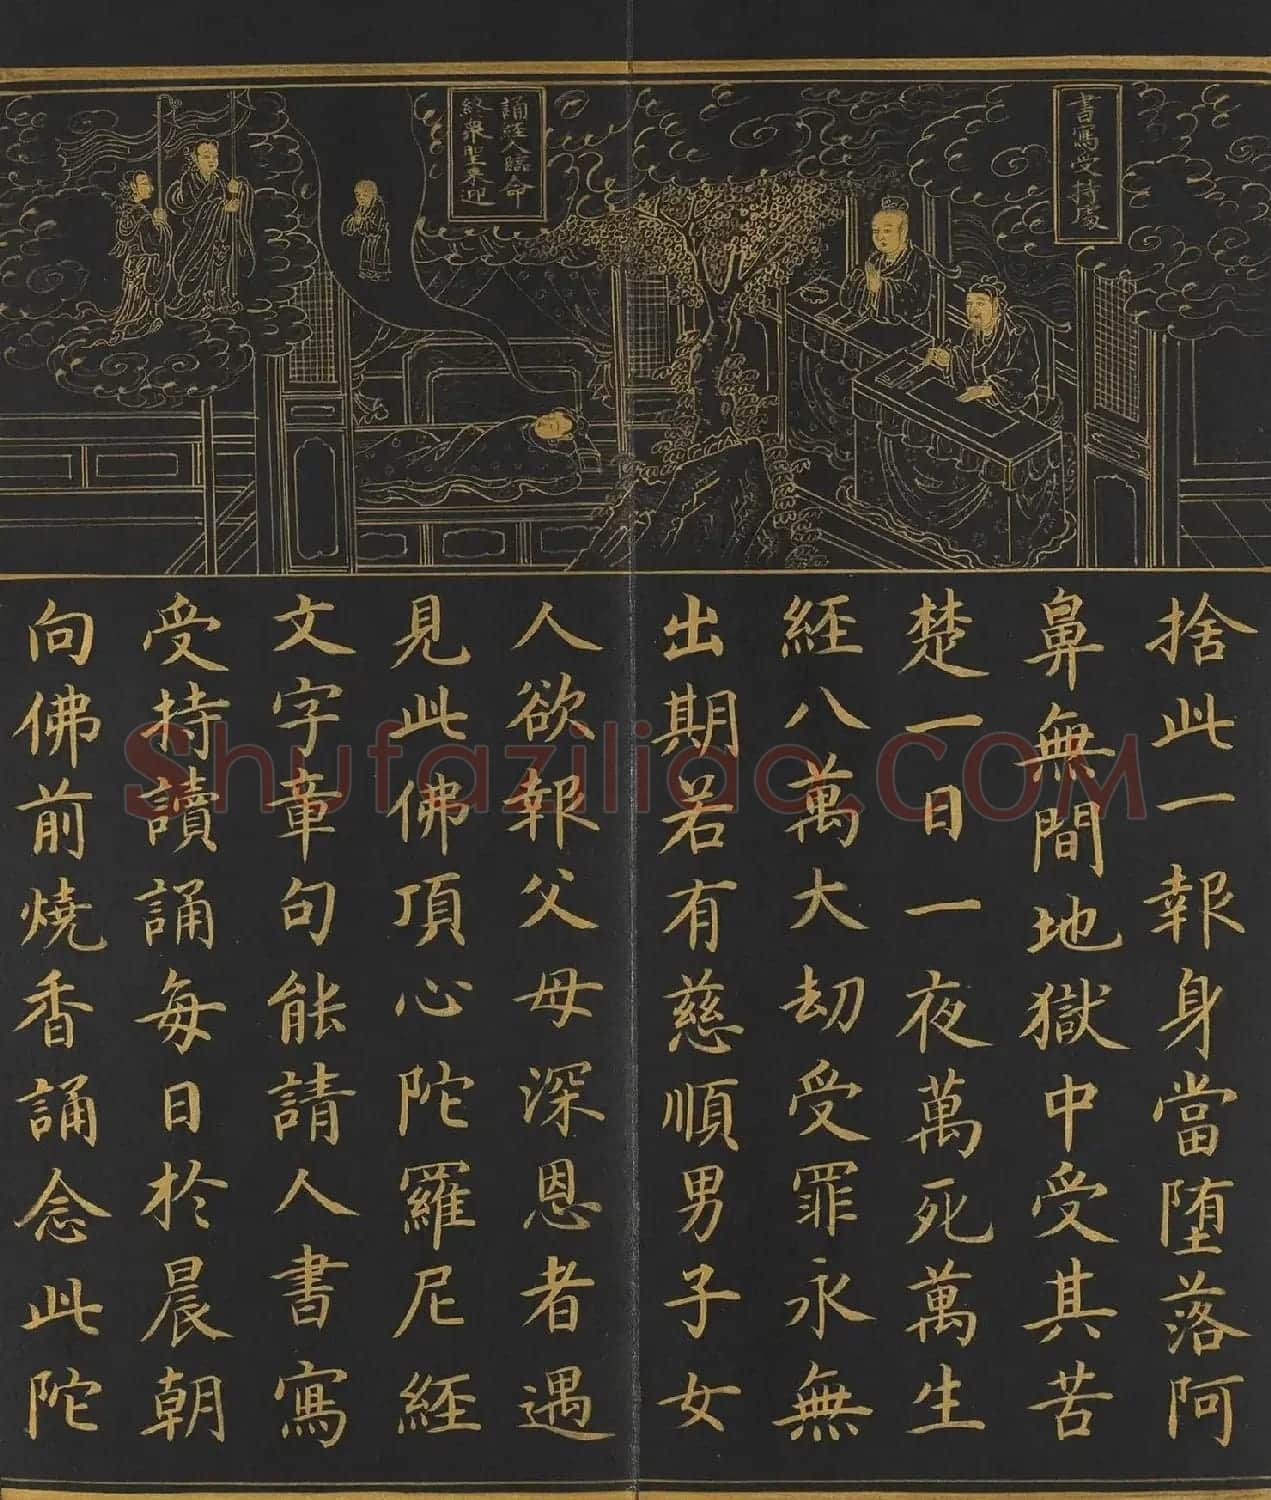 書寫受持處
誦經人臨命
終衆聖來迎
捨此一報身當堕落阿
鼻無間地獄中受其苦
楚一日一夜萬死萬生
經八萬大劫受罪永無
出期若有慈順男子女
人欲報父母深恩者遇
見此佛頂心陀羅尼經
文字章句能請人書寫
受持讀誦每日於晨朝
向佛前燒香誦念此陀
Shufaziliao.COM